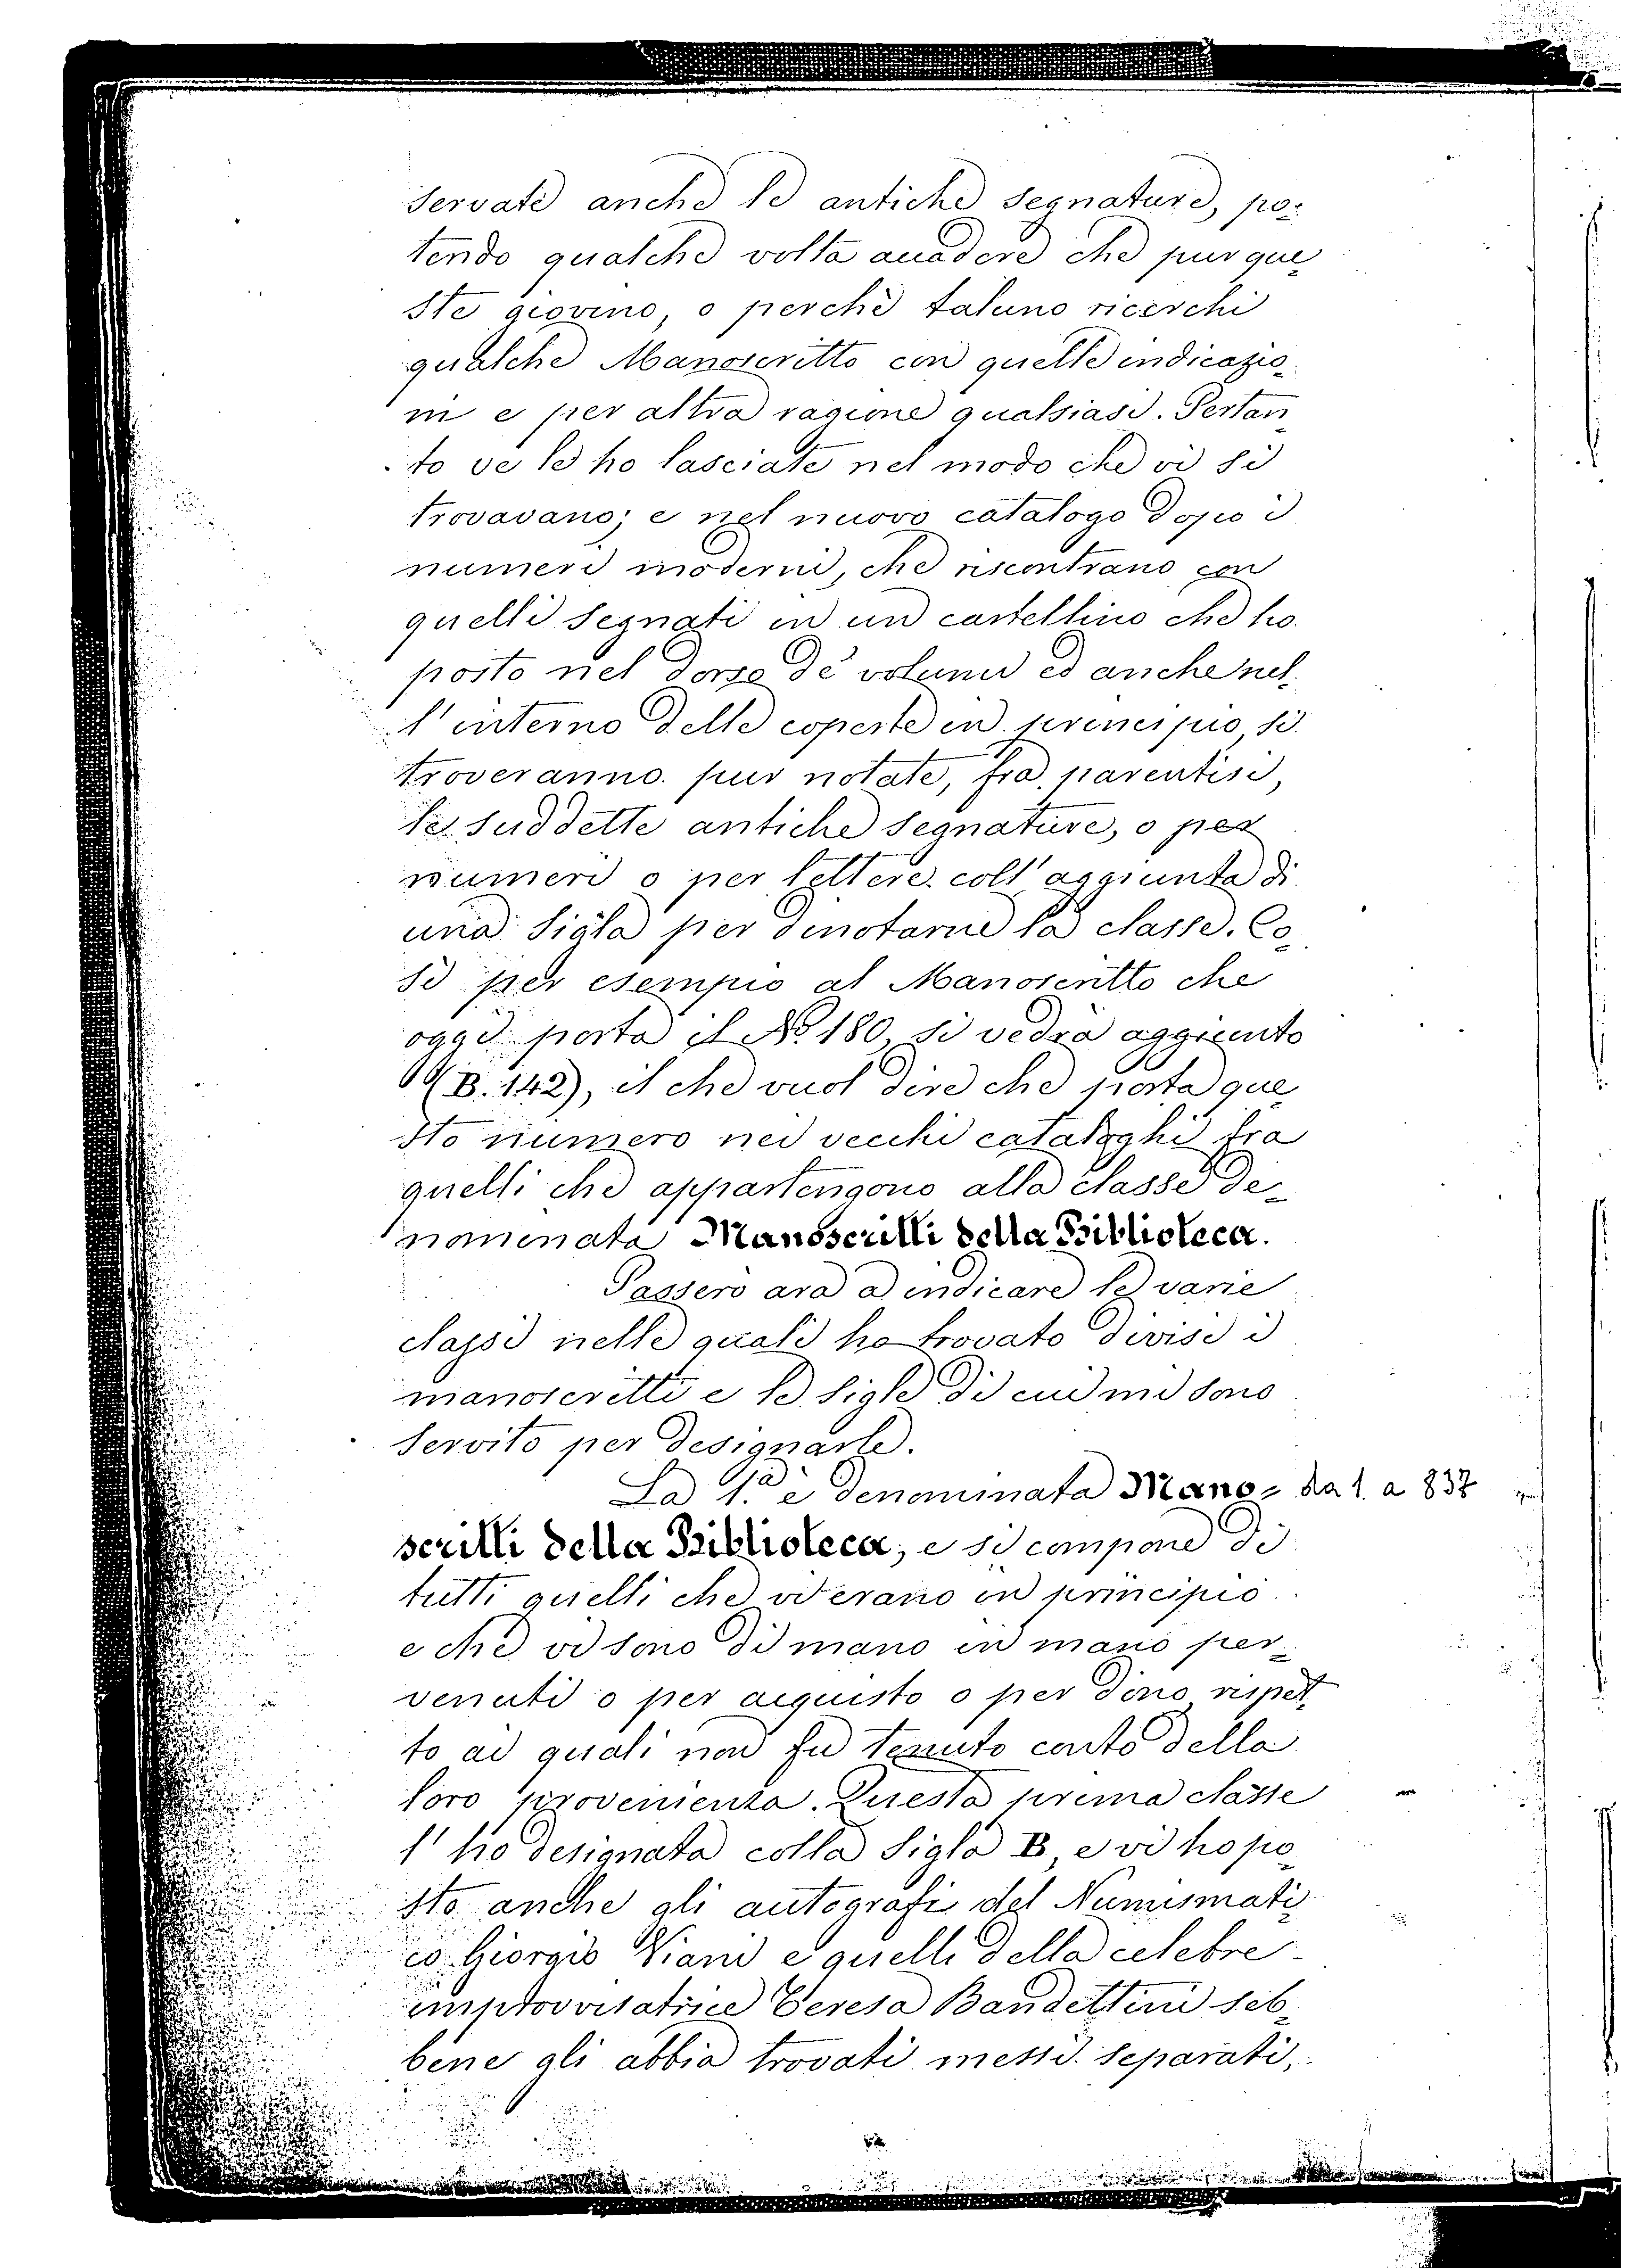 servate anche le antiche segnature, po=
tendo qualche volta accadere che pur que=
ste giovino, o perchè taluno ricerchi
qualche Manoscritto con quelle indicazio=
ni e per altra ragione qualsiasi. Pertan=
to ve le ho lasciate nel modo che vi si
trovavano; e nel nuovo catalogo dopo i
numeri moderni, che riscontrano con
quelli segnati in un cartellino che ho
posto nel dorso de' volumi ed anche nel=
l'interno delle coperte in principio, si
troveranno pur notate, fra parentisi,
le suddette antiche segnature, o per
numeri o per lettere coll'aggiunta di
una sigla per dinotarne la classe. Co=
sì per esempio al Manoscritto che
oggi porta il No. 180, si vedrà aggiunto
(B. 142), il che vuol dire che porta que=
sto numero nei vecchi cataloghi fra
quelli che appartengono alla classe de=
nominata Manoscritti della Biblioteca.
Passerò ara a indicare le varie
classi nelle quali ho trovato divisi i
manoscritti e le sigle di cui mi sono
servito per designarle.
La 1.a è denominata Mano= da 1. a 837
scritti della Biblioteca, e si compone di
tutti quelli che vi erano in principio
e che vi sono di mano in mano per=
venuti o per acquisto o per dono rispet=
to ai quali non fu tenuto conto della
loro provenienza. Questa prima classe
l'ho designata colla sigla B, e vi ho po=
sto anche gli autografi del Numismati=
co Giorgio Viani e quelli della celebre
improvvisatrice Teresa Bandettini seb=
bene gli abbia trovati messi separati,